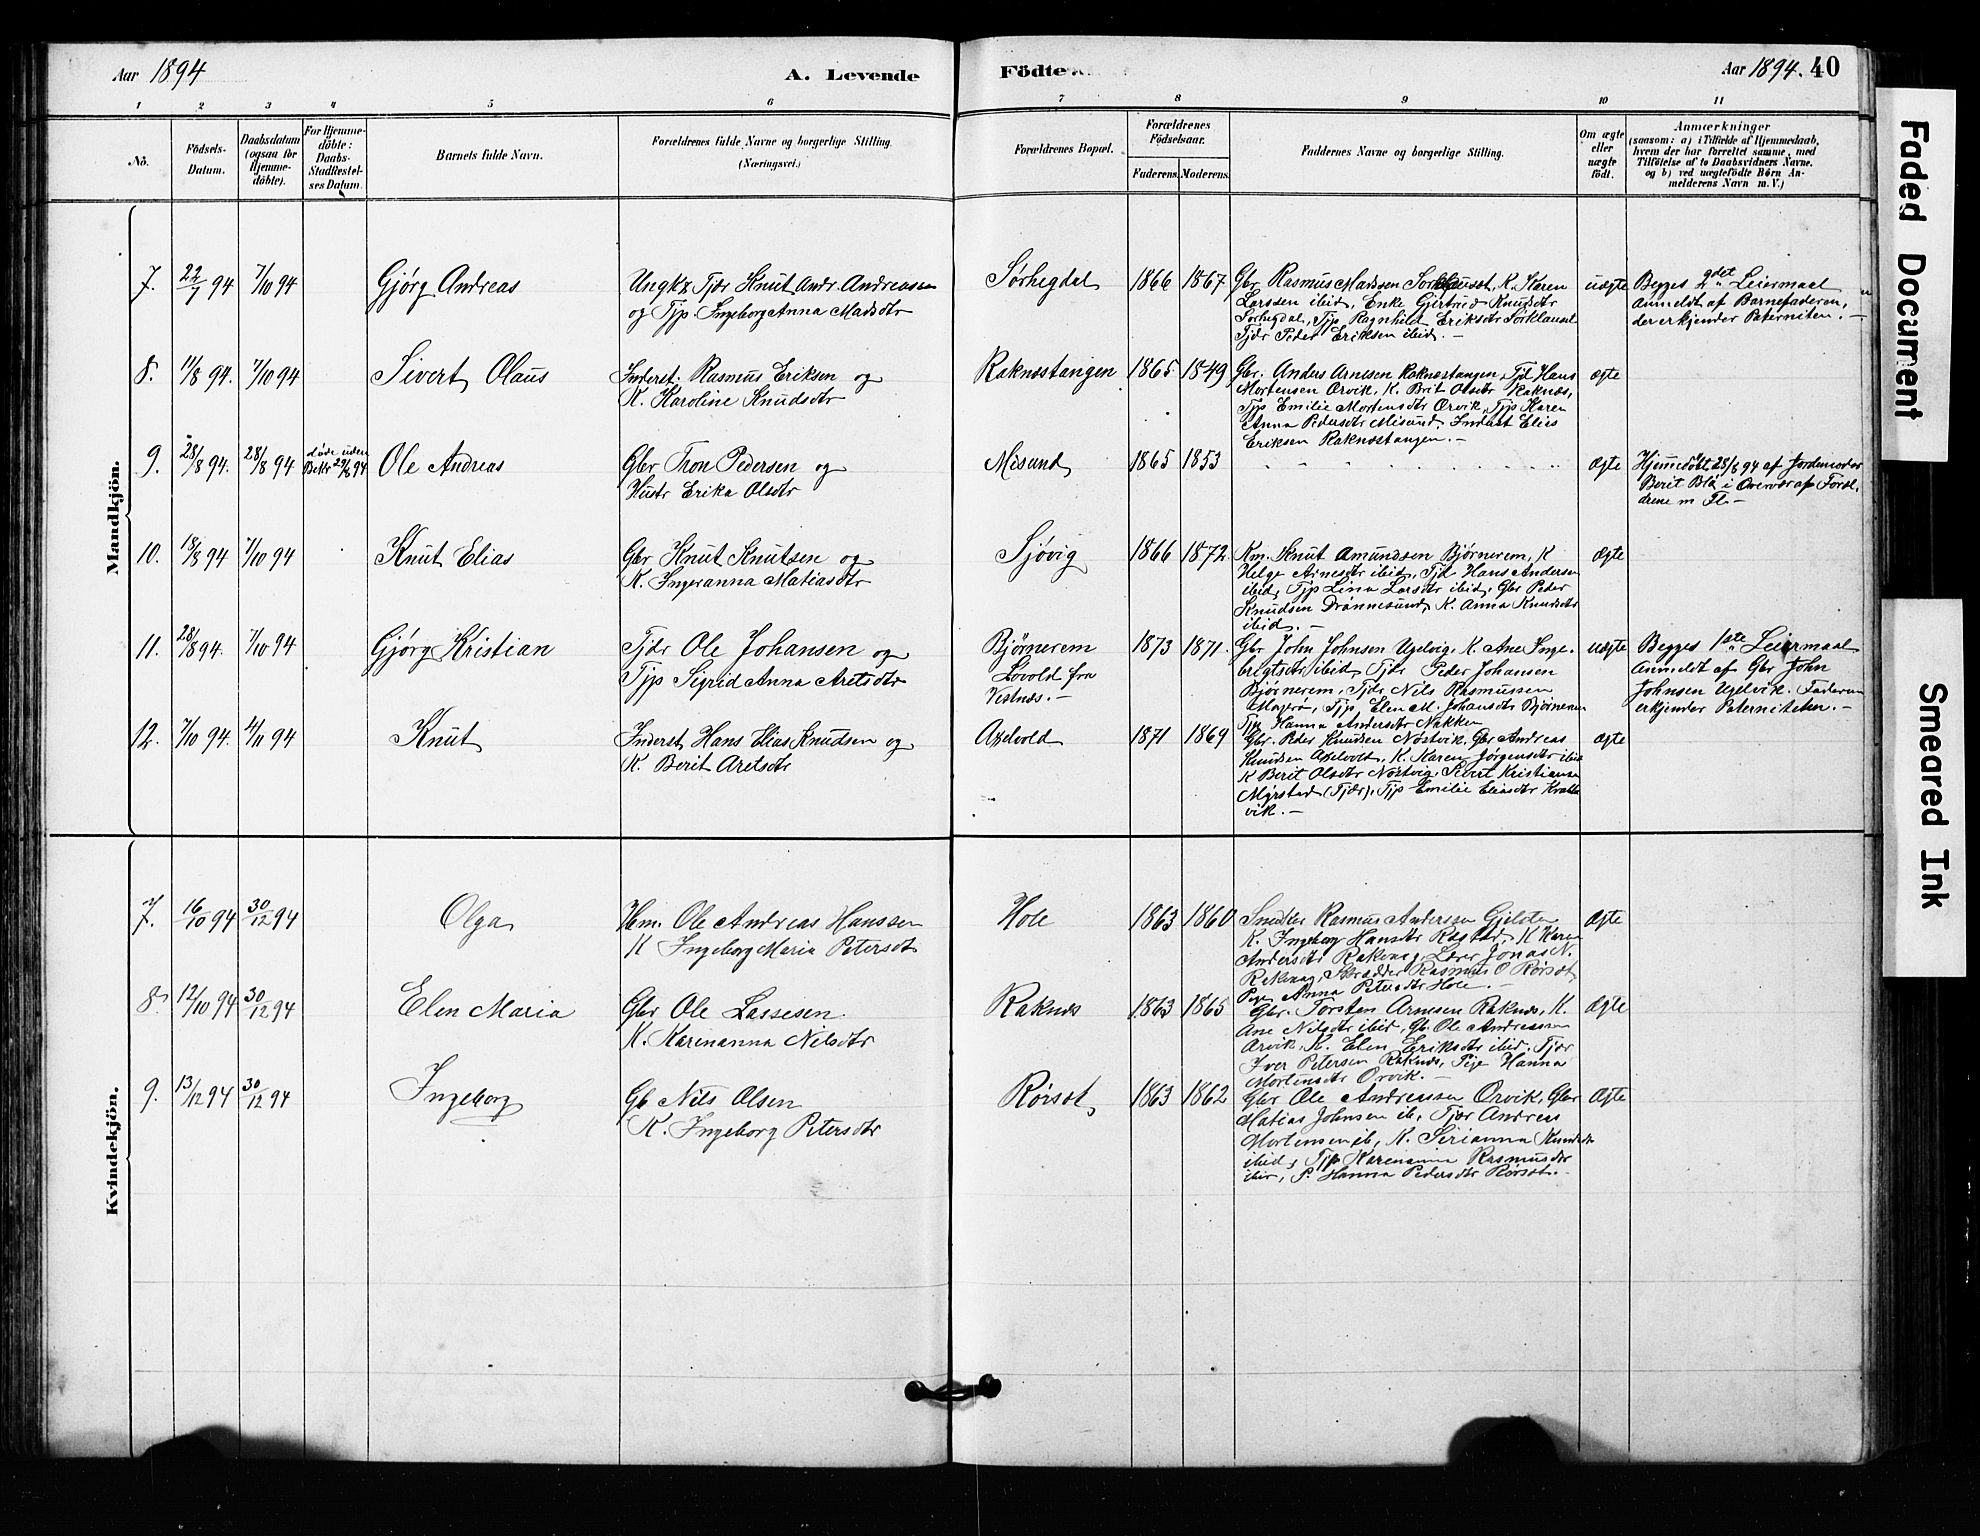 Aar 1894
A. Levende
Födte
Aar 1894. 40
1 2 3 4 5 6 7 8 9 10 11
No.
Födsels-
Datum.
Daabsdatum
(ogsaa for
Hjemme-
döbte).
For Hjemme-
döbte:
Daabs-
Stadfæstel-
ses Datum.
Barnets fulde Navn.
Forældrenes fulde Navne og borgerlige Stilling.
(Næringsvei.)
Forældrenes Bopæl.
Forældrenes
Födselsaar.
Faderens. Moderens.
Faddernes Navne og borgerlige Stilling.
Om ægte
eller
uægte
födt.
Anmærkninger
(saasom: a) i Tilfælde af Hjemmedaab,
hvem der har forrettet samme, med
Tilföielse af to Daabsvidners Navne.
og b) ved uægtefödte Børn An-
melderens Navn m.V.)
Mandkjön.
7. 22/7 94 7/10 94 Gjørg Andreas
Ungk. Tjdr Knut Andr. Andreasen
og Tjp. Ingeborg Anna Madsdtr
Sørhegdal 1866 1867
Gbr Rasmus Madssen K. Karen
Larsden ibid, Enke Gjertrud Knudsdtr
Sørhegdal, Tjp Ragnhild Eriksdtr Sörklauset
Tjdr Peder Eriksen ibid. —
uægte
Begges 2det Leiermaal
Anmeldt af Barnefaderen,
der erkjender Paterniten. —
8. 11/8 94. 7/10 94 Sivert Olaus
Inderst. Rasmus Eriksen og
K. Karoline Knudsdtr
Raknæstangen 1865 1849
Gbr. Anders Arnesen Raknæstangen, Tjd Hans
Mortensen Orvik, K. Brit Olsdtr Raknæs,
Tjp Emilie Mortensdtr Orvik, Tjp Karen
Anna Pedersdtr Misund, Inderst Elias
Eriksen Raknæstangen. —
ægte
9. 28/8 94. 28/8 94 døde uden
Bekr 29/8 94 Ole Andreas
Gbr Tron Pedersen og
Hustr Erika Olsdtr
Misund 1865 1853
ægte
Hjemmedöbt 28/8 94 af Jordemoder
Berit Blø i Overvær af Foræl.
drene m Fl. —
10. 18/8 94 7/10 94 Knut Elias
Gbr Knut Knutsen og
K. Ingeranna Matiasdtr
Sjøvig 1866 1872
Km. Knut Amundsen Bjørnerem, K
Helge Arnesdtr ibid, Tjd Hans Andersen
ibid, Tjp Lina Larsdtr ibid. Gbr Peder
Knudsen Drønnesund, K. Anna Knudsdtr
ibid. —
ægte
11. 28/8 94. 7/10 94 Gjørg Kristian
Tjdr Ole Johansen og
Tjp Sigrid Anna Aretsdtr
Bjørnerem
Lovold fra
Vestnæs. —
1873 1871.
Gbr John Johnsen Ugelvig, K. Ane Inge-
brigtsdtr ibid, Tjdr Peder Johansen
Bjørnerem, Tjdr Nils Rasmussen
Majerø, Tjp Elen M. Johansdtr Bjørnerem
Tjp Hanna Andersdtr Nakken
uægte
Begges 1ste Leiermaal
Anmeldt af Gbr John
Johnsen Ugelvik. Faderen
erkjender Paterniteten. —
12. 7/10 94. 4/11 94 Knut
Inderst Hans Elias Knudsen og
K. Berit Aretsdtr
Axelvold 1871 1869
Gbr. Peder Knudsen Nöstvik. Gbr Andreas
Knudsen Axelvolt, K. Karen Jørgensdtr ibid
K Berit Olsdtr Nöstvig, Sivert Kristiansen
Myrstad (Tjdr), Tjp Emilie Eliasdtr
vik. —
ægte
Kvindekjön.
7. 16/10 94 30/12 94 Olga
Hm. Ole Andreas Hanssen
K Ingeborg Maria Petersdt
Hole 1863 1860
Smed Rasmus Anderssen Gjelsten
K. Ingeborg Hansdtr Rogstad, K Karen
Andersdtr Rekenæs, Lærer Jonas N.
Rekenæs, Skrædder Rasmus O Rørsæt,
Pige Anna Petersdtr Hole. —
ægte
8. 12/10 94 30/12 94 Elen Maria
Gbr Ole Lassesen
K. Karenanna Nilsdtr
Raknæs 1863 1865
Gbr. Torsten Arnesen Raknæs, K.
Ane Nilsdtr ibid, Gb. Ole Andreassen
Orvik, K. Elen Eriksdtr ibid. Tjdr
Iver Petersen Raknæs, Pige Hanna
Mortensdtr Orvik. —
ægte
9. 13/12 94 30/12 94 Ingeborg
Gb Nils Olsen
K. Ingeborg Petersdtr
Rörsæt 1863 1862
Gbr Ole Andreassen Orvik, Gbr
Matias Johnsen ib, Tjdr Andreas
Mortensen ib, K. Serianna Knudsdtr
ibid, Tjp Karenanna Rasmusdtr
ibid, P. Hanna Pedersdtr Rörsæt. —
ægte
Faded Document
Smeared Ink